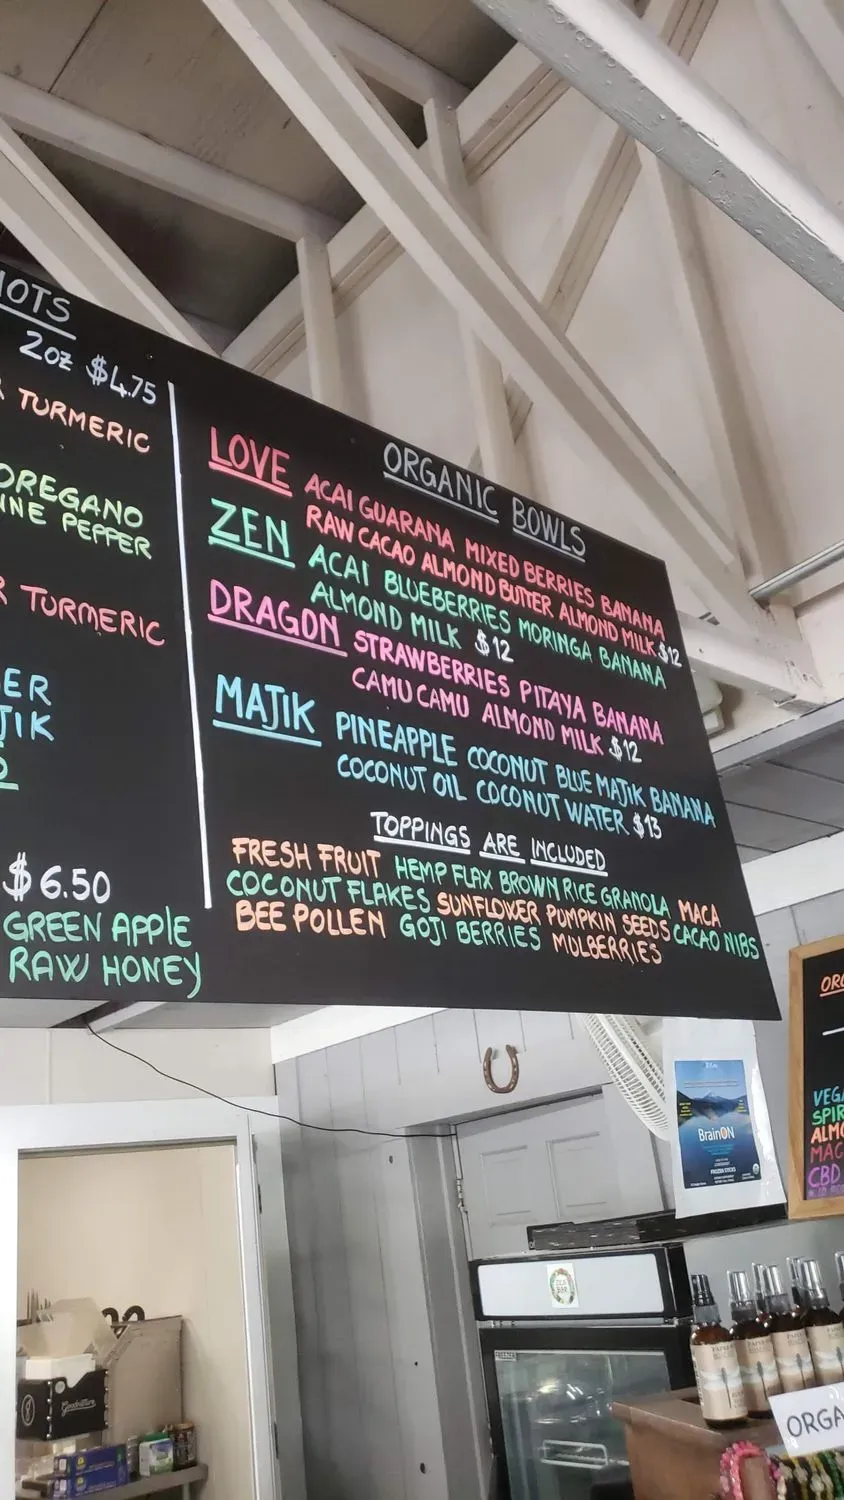 2oz $4.75
TURMERIC
OREGANO
PEPPER
TURMERIC
$6.50
GREEN APPLE
RAW HONEY
ORGANIC BOWLS
LOVE ACAI GUARANA MIXED BERRIES BANANA
RAW CACAO ALMOND BUTTER ALMOND MILK $12
ZEN ACAI BLUEBERRIES MORINGA BANANA
ALMOND MILK $12
DRAGON STRAWBERRIES PITAYA BANANA
CAMU CAMU ALMOND MILK $12
MAJIK PINEAPPLE COCONUT BLUE MAJIK BANANA
COCONUT OIL COCONUT WATER $13
TOPPINGS ARE INCLUDED
FRESH FRUIT HEMP FLAX BROWN RICE GRANOLA MACA
COCONUT FLAKES SUNFLOWER PUMPKIN SEEDS CACAO NIBS
BEE POLLEN GOJI BERRIES MULBERRIES
BrainON
FROZEN STICKS
CBD